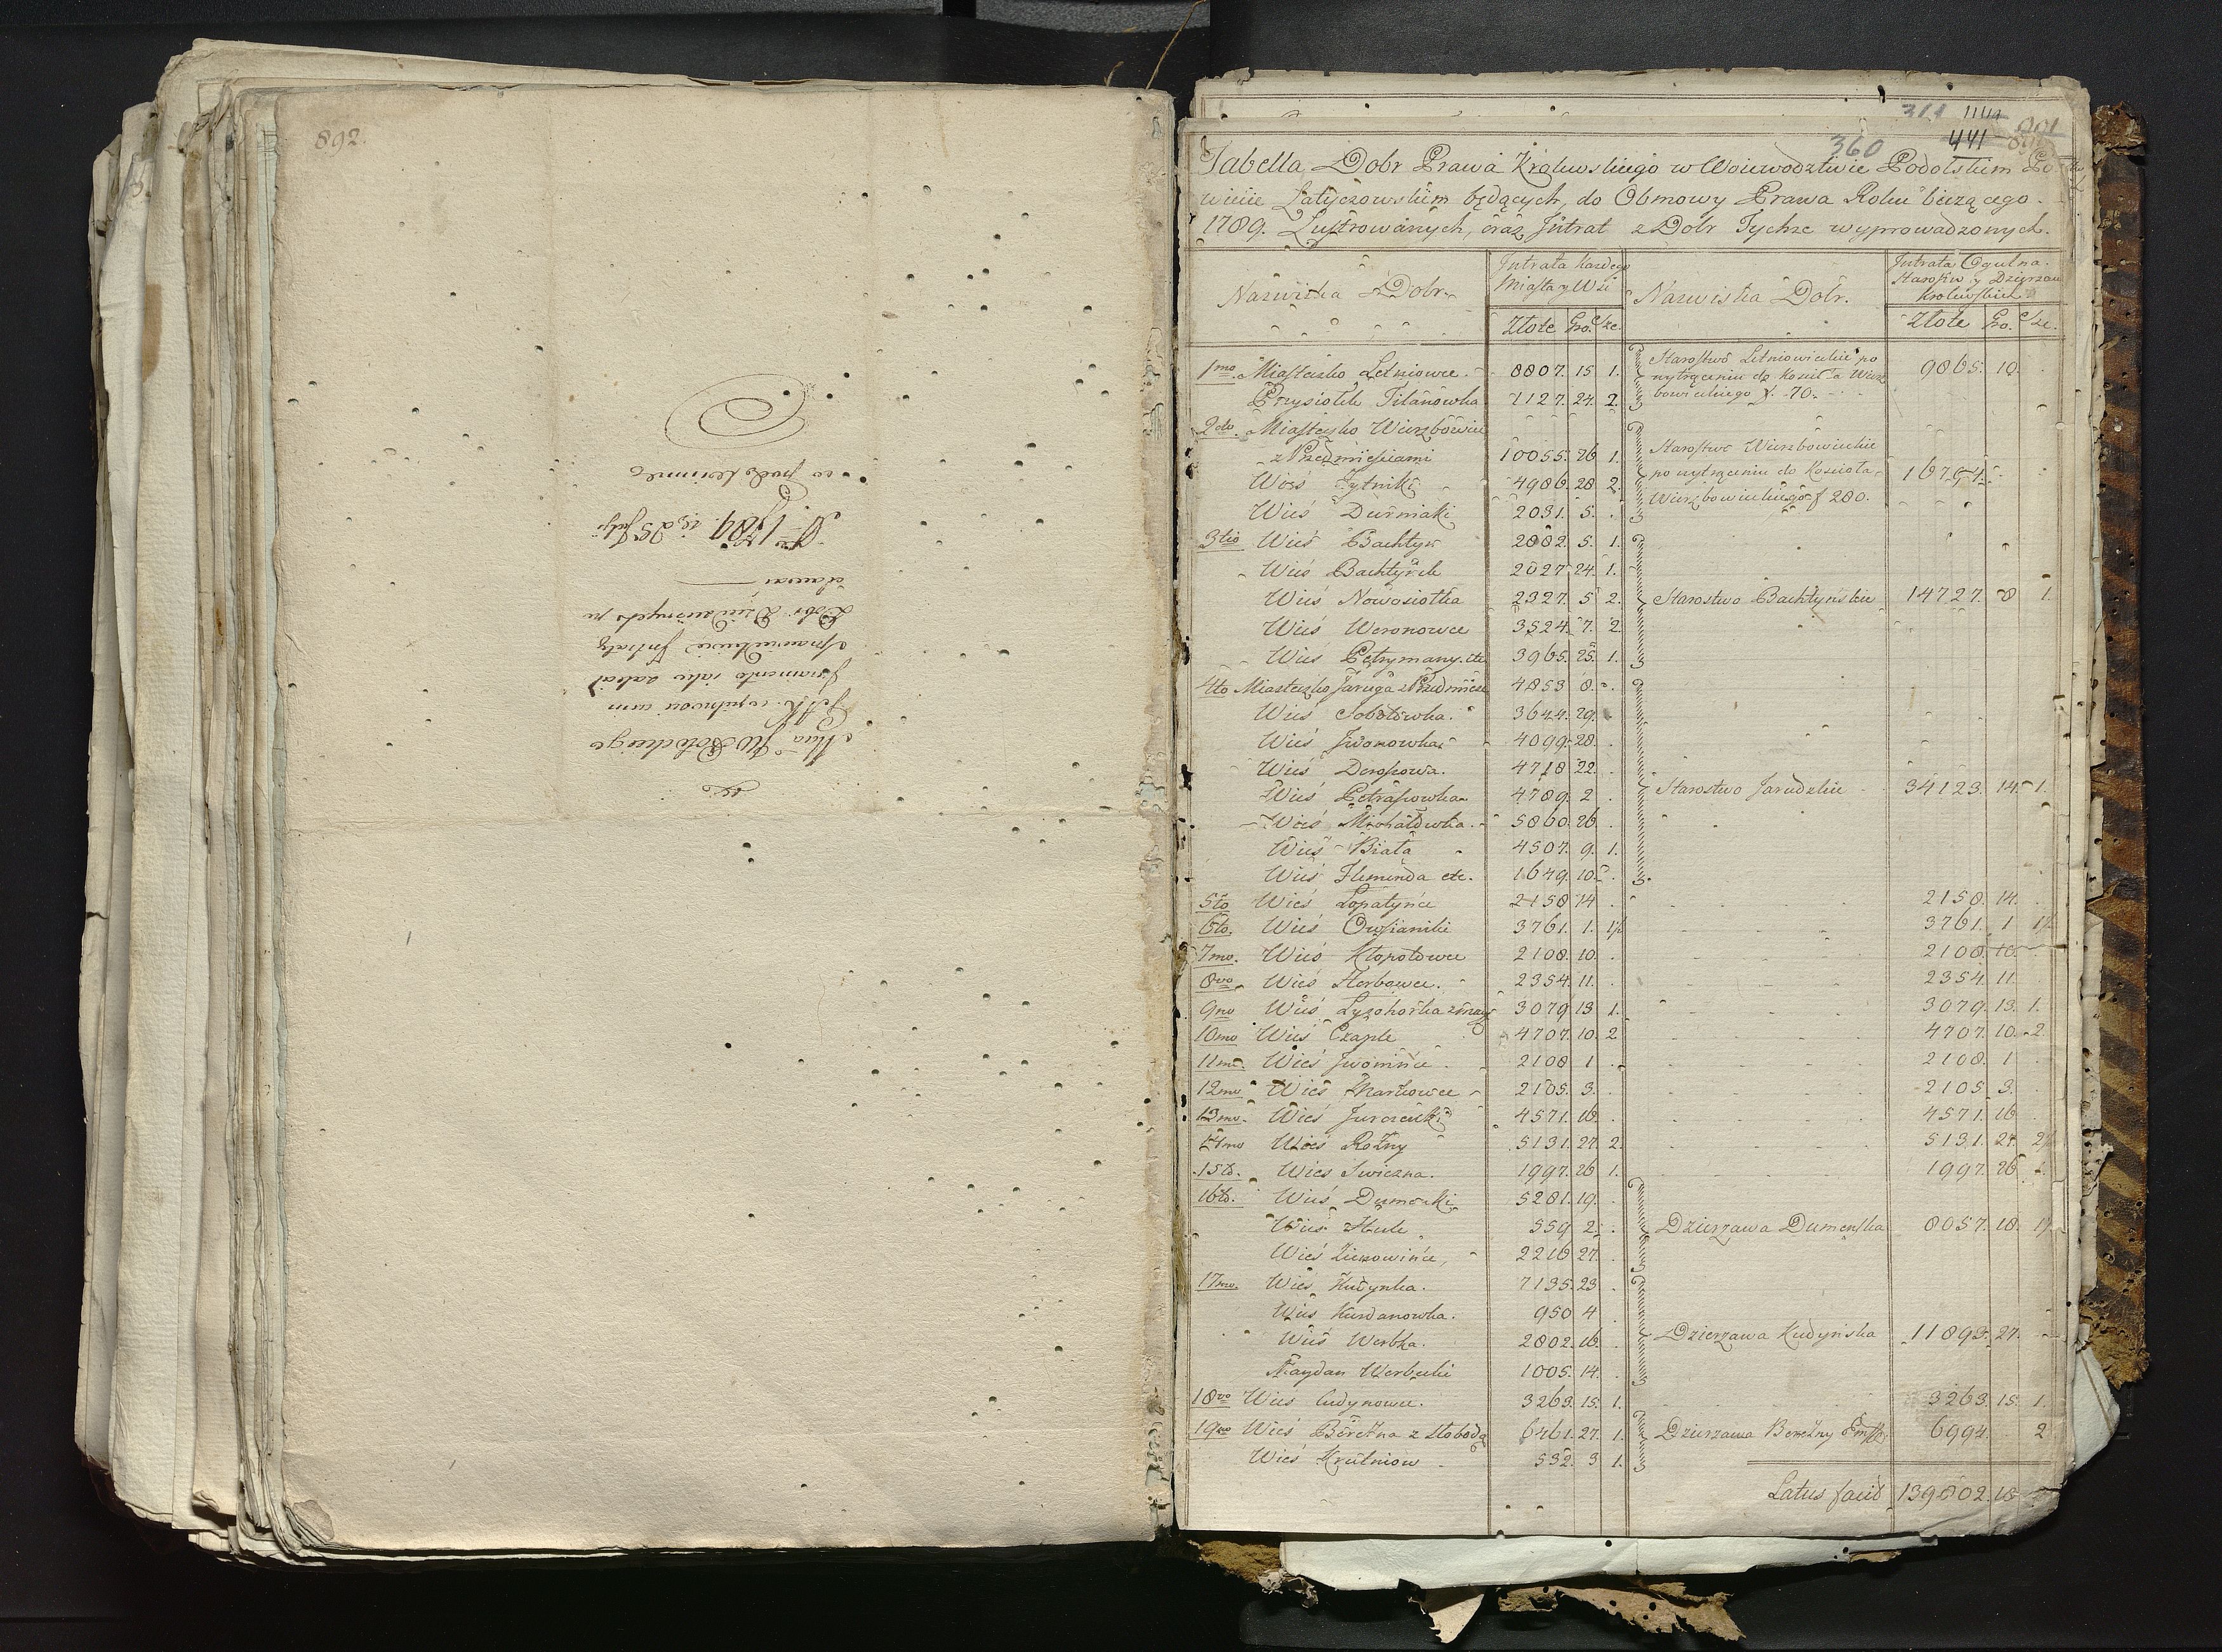 892.
Nra JW Potockiego
Juramento iako zaleca
sprawiedliwie Intraty
Dobr Dziedzicznych po
A. 1789. 25 July
co podo
311 1144 901
360 441
Tabella Dobr Prawa Krolewskiego w Woiewodztwie Podolskim Po-
wiecie Latyczowskim będących, do Obmowy Prawa Roku bieżącego
1789. Lustrowanych, oraz Intrat z Dobr Tychże wyprowadzonych.
Nazwiska Dobr. Intrata każdego Miasta y Wsi Złote Gro. Sze. Nazwiska Dobr. Intrata Ogulna. Starostw y Dzierżaw Krolewskich Złote Gro. Sze.
1mo. Miasteczko Letniowce. 8807. 15 1. Starostwo Letniowieckie po wytrąceniu do Kościoła Wierzbowieckiego f. 70. 9865. 10.
Przysiołek Tilanowka 1127. 24. 2.
2do. Miasteczko Wierzbowiec
z Przedmieściami 10055. 26 1. Starostwo Wierzbowieckie po wytrąceniu do Kościoła Wierzbowieckiego f 280. 16794.
Wieś Zytniki 4986. 28 2.
Wieś Durniaki 2031. 5.
3tio Wieś Bachtyn 2882. 5. 1.
Wieś Bachtynek 2027. 24. 1.
Wieś Nowosiołka 2327. 5 2. Starostwo Bachtyńskie 14727. 8 1.
Wieś Weronowce 3524. 7. 2.
Wieś Petrymany. etc 3965. 25. 1.
4to Miasteczko Jaruga z Przedmieśc 4853 8.
Wieś Sobotowka. 3644. 29.
Wieś Iwonowka 4099. 28.
Wieś Derosowa. 4718 22.
Wieś Petrasowka 4789. 2 Starostwo Jarudzkie 34123. 14. 1.
Wieś Michałowka. 5860. 26
Wieś Biała 4507. 9. 1.
Wieś Fleminda etc. 1649. 10.
5to Wieś Łopatyńce 2158 14 2158. 14.
6to. Wieś Owsianiki 3761. 1. 1½ 3761. 1 1½
7mo. Wieś Kłopotowce 2108. 10. 2108. 10.
8vo. Wieś Horbowce. 2354. 11. 2354. 11
9no Wieś Łysohorka 3079 13 1. 3079. 13. 1.
10mo Wieś Czaple 4707. 10. 2 4707. 10. 2
11mo. Wieś Iwonińce 2108 1 2108. 1
12mo Wieś Markowce 2105. 3. 2105. 3.
13mo. Wieś Jurczenki 4571. 16. 4571. 16
14mo Wieś Rożny 5131. 27. 2. 5131. 27. 2½
15to. Wieś Swiczna. 1997. 26 1. 1997. 26
16to. Wieś Dumenki 5281. 19.
Wieś Hule 559 2. Dzierżawa Dumenska 8057. 18. 1½
Wieś Zienowińce, 2216 27.
17mo. Wieś Kudynka. 7135. 23
Wieś Kurdanowka. 950 4
Wieś Werbka. 2802. 16. Dzierżawa Kudyńska 11893. 27.
Maydan Werbecki 1005. 14.
18vo Wieś Cudynowce. 3263. 15. 1. 3263. 15. 1.
19no Wieś Bereżna z Słobodą 6461. 27. 1. Dzierżawa Bereżny 6994. 2
Wieś Krutniow 532. 3 1.
Latus facit 139802. 18